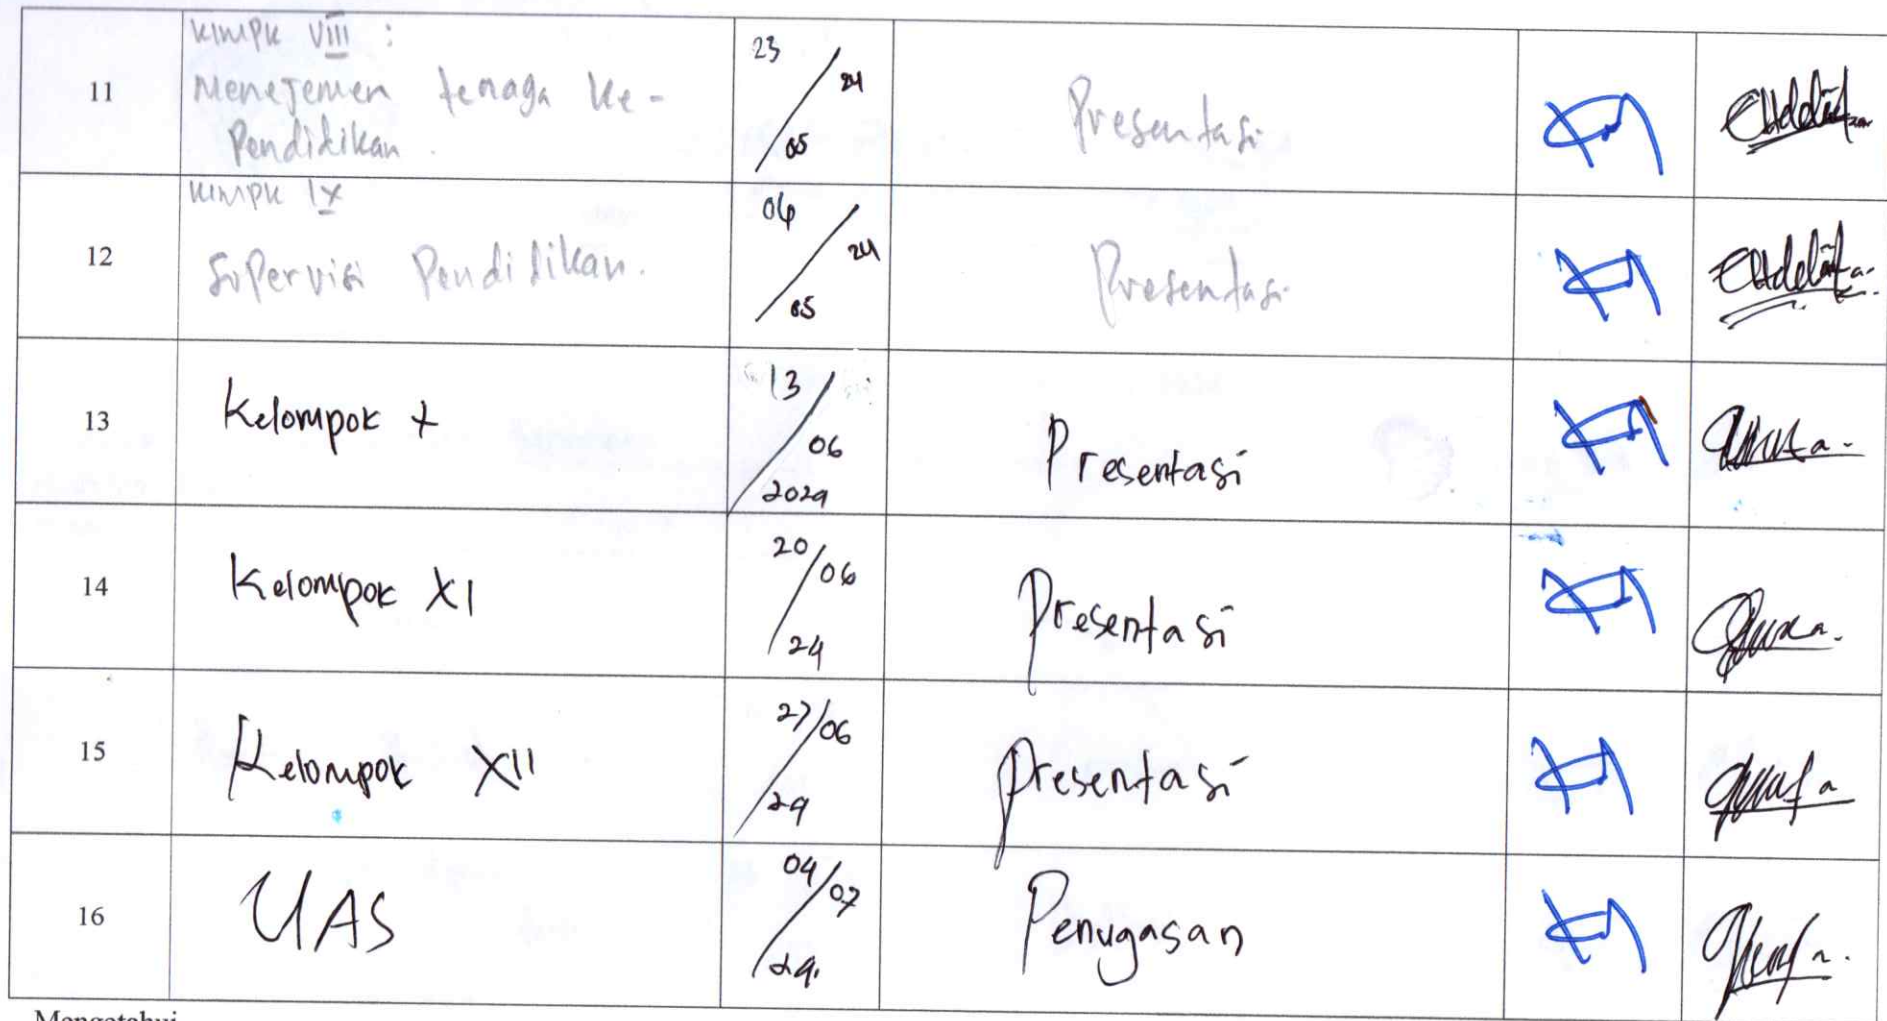 11
klmpk VIII :
Menejemen tenaga ke-
Pendidikan.
23
24
05
Presentasi
12
klmpk IX
Supervisi Pendidikan.
06
24
05
Presentasi
13
Kelompok X
13
06
2024
Presentasi
14
Kelompok XI
20/06
24
Presentasi
15
Kelompok XII
27/06
24
Presentasi
16
UAS
04/07
24.
Penugasan
Mengetahui